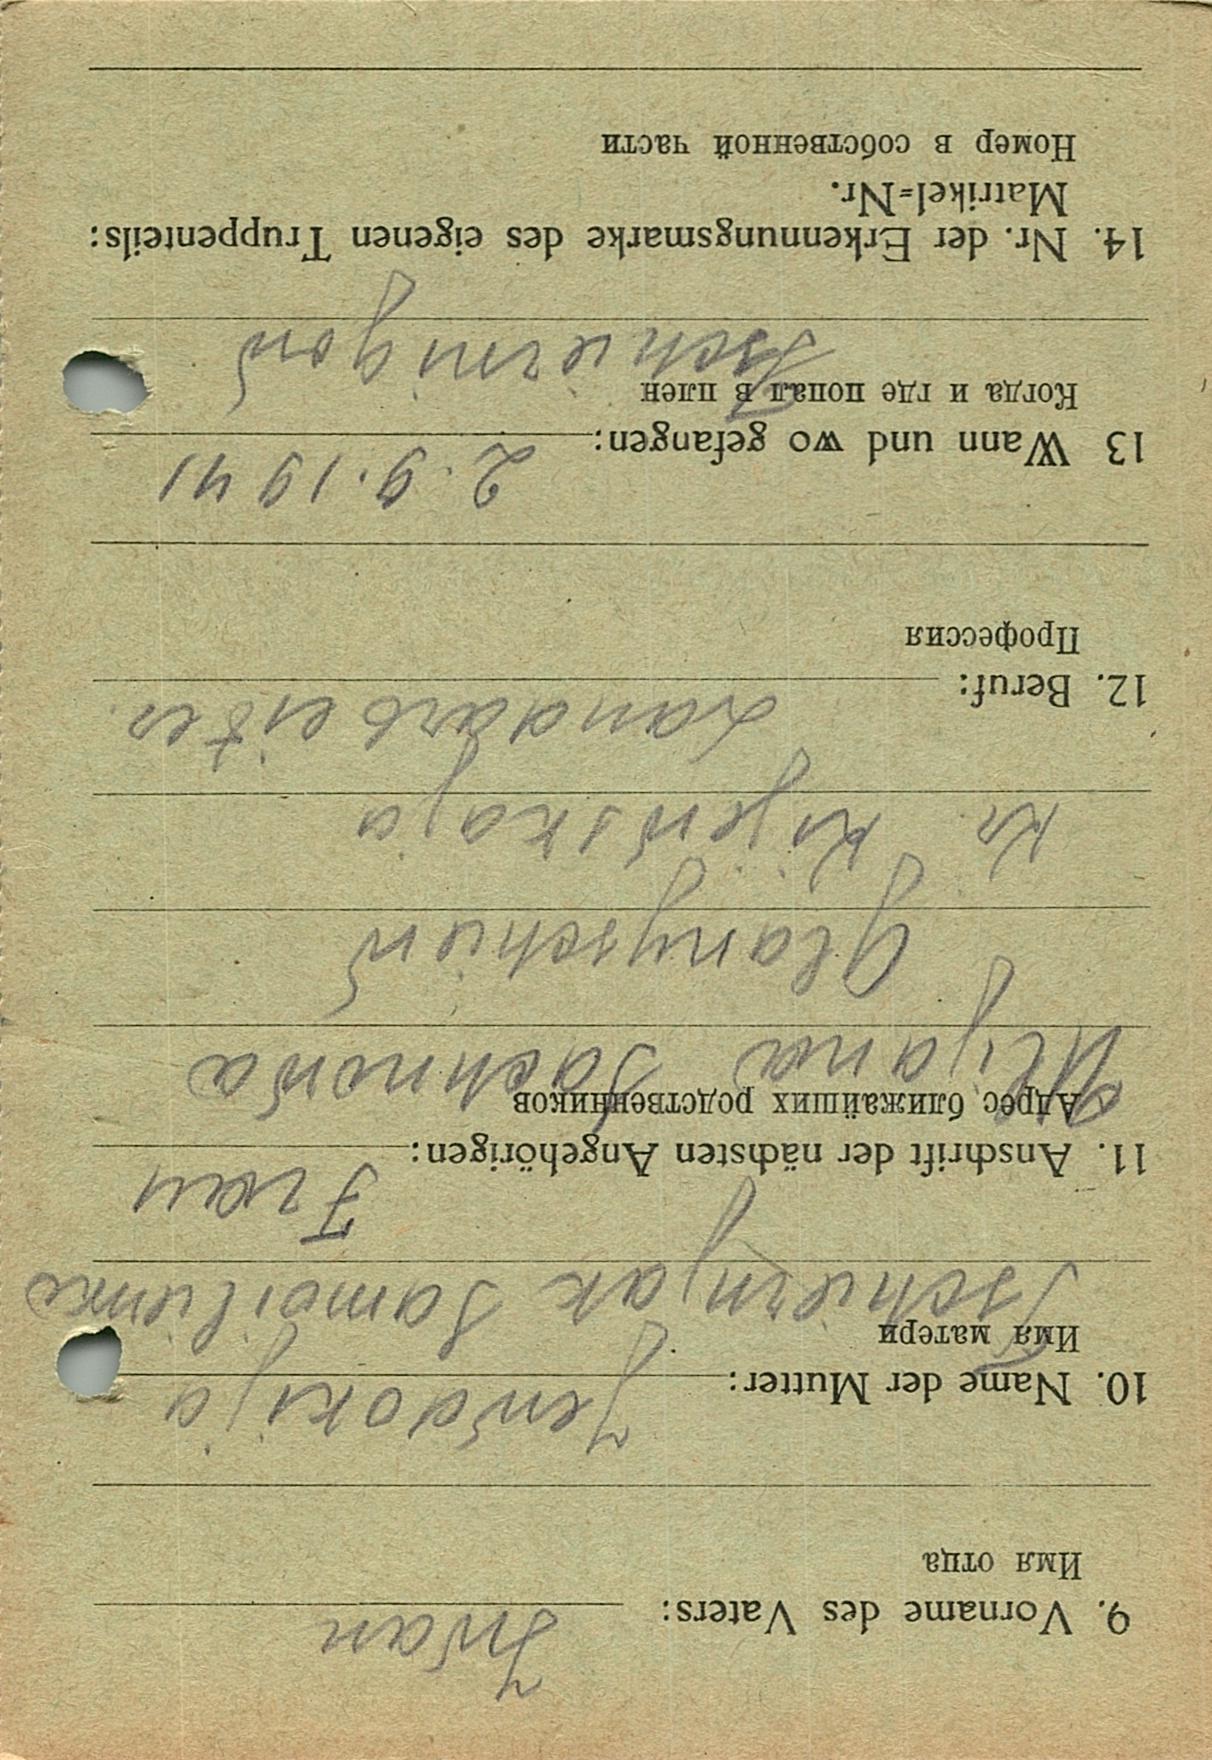 9. Vorname des Vaters: Iwan
Имя отца
10. Name der Mutter: Jewdokija
Имя матери
Tschernjak Samoilowa
11. Anschrift der nächsten Angehörigen: Frau
Адрес ближайших родственников
Uljana
Kr. Kijewskaja
12. Beruf: Landarbeiter.
Профессия
13 Wann und wo gefangen: 2.9.1941
Когда и где попал в плен
Tschernigow
14. Nr. der Erkennungsmarke des eigenen Truppenteils:
Matrikel=Nr.
Номер в собственной части